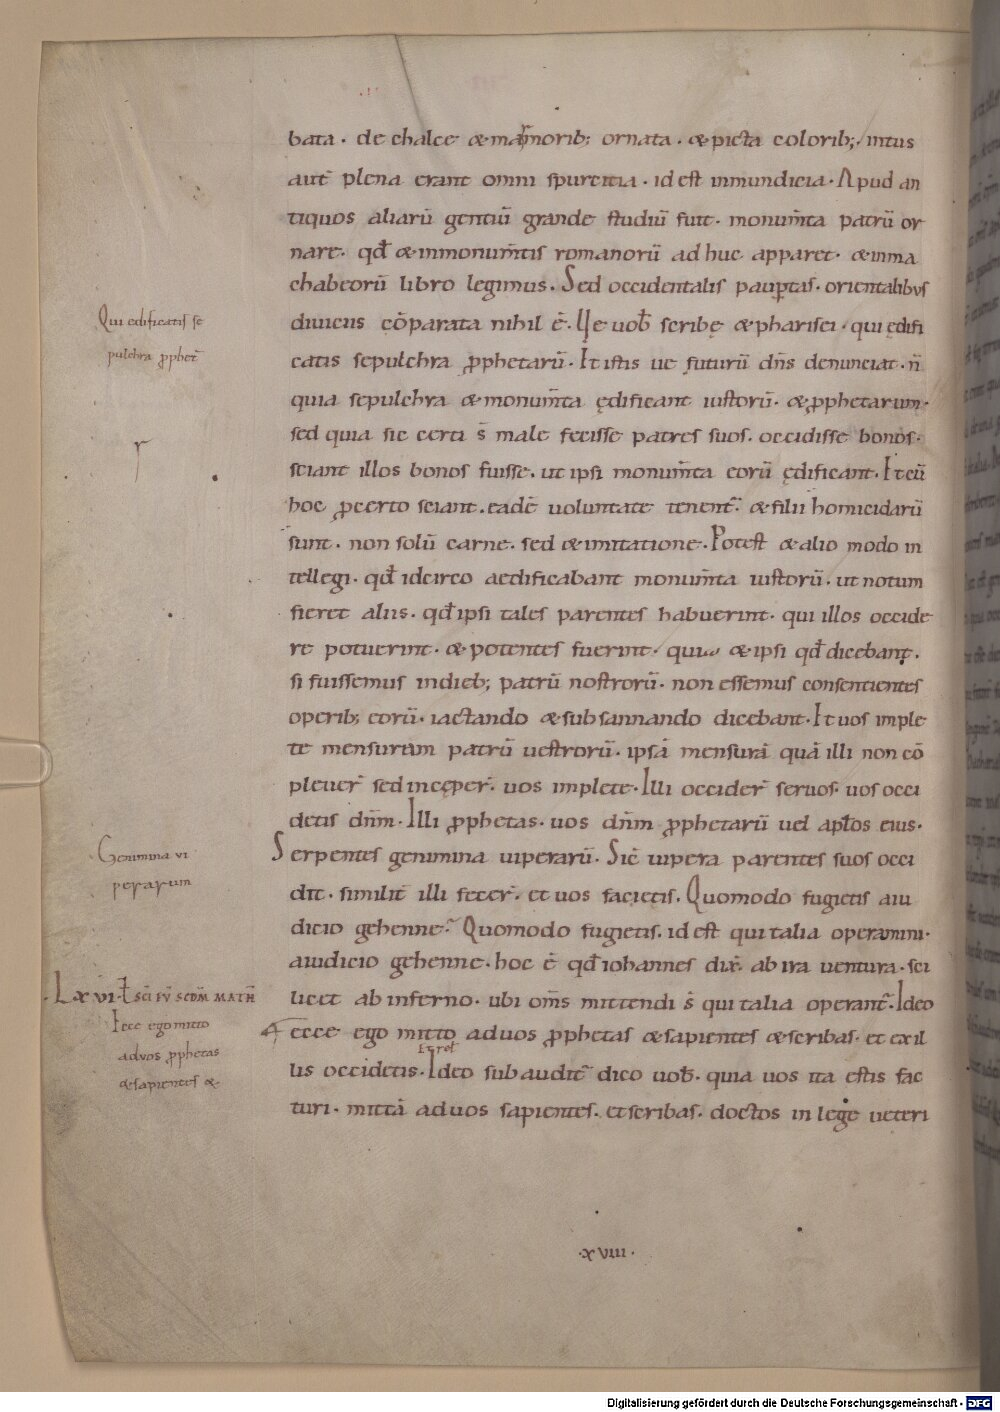 bata · de chalce & marmorib; ornata · & picta colorib; · intus
aut̄ plena erant omni spurcitia · id est inmundicia · Apud an
tiquos aliarū gentiū grande studiū fuit · monum̄ta patrū or
nare · qđ & in monum̄tis romanorū ad huc apparet · & in ma
chabeorū libro legimus . Sed occidentalis paup̱tas · orientalibus
diuiciis cōparata nihil ē . Ue uob̄ scribę & pharisei · qui ędifi
catis sepulchra ꝓphetarū · It istis ue futurū dn̄s denunciat · n̄
quia sepulchra & monum̄ta ędificant iustorū · & ꝓphetarum ·
sed quia sic certi s̄ male fecisse patres suos . occidisse bonos ·
sciant illos bonos fuisse . ut ipsi monum̄ta eorū ędificant · It cū
hoc ꝓcerto sciant . eadē uoluntate tenent̄ · & filii homicidarū
sunt · non solū carne · sed & imitatione · Potest & alio modo in
tellegi · qđ idcirco aedificabant monum̄ta iustorū · ut notum
fieret aliis · qđ ipsi tales parentes habuerint · qui illos occide
re potuerint · & potentes fuerint · quia & ipsi qđ dicebant .
si fuissemus in dieb; patrū nostrorū · non essemus consentientes
operib; eorū · iactando & subsannando dicebant · It uos imple
te mensuram patrū uestrorū · ipsā mensurā quā illi non cō
pleuer̄ sed incęper̄ · uos implete · Illi occider̄ seruos · uos occi
detis dn̄m · Illi ꝓphetas · uos dn̄m ꝓphetarū uel apl̄os eius ·
Serpentes genimina uiperarū · Sic̄ uipera parentes suos occi
dit · similit̄ illi fecer̄ · et uos facietis . Quomodo fugietis a iu
dicio gehenne · Quomodo fugietis . id est qui talia operamini ·
a iudicio gehenne · hoc ē qđ iohannes dix̄ · ab ira uentura · sci
licet ab inferno · ubi om̄s mittendi s̄ qui talia operant̄ · Ideo
ecce ego mitto ad uos ꝓphetas & sapientes & scribas · et ex il
lis occidetis · Ideo subaudit̄ dico uob̄ · quia uos ita estis fac
turi · mittā ad uos sapientes . et scribas . doctos in lege ueteri
· xviii ·
Qui edificatis se
pulchra ꝓphet̄
r
Genimina vi
perarum
· Lxvi · sc̄i ev̄ scd̄m math̄
Ecce ego mitto
ad vos ꝓphetas
& sapientes &